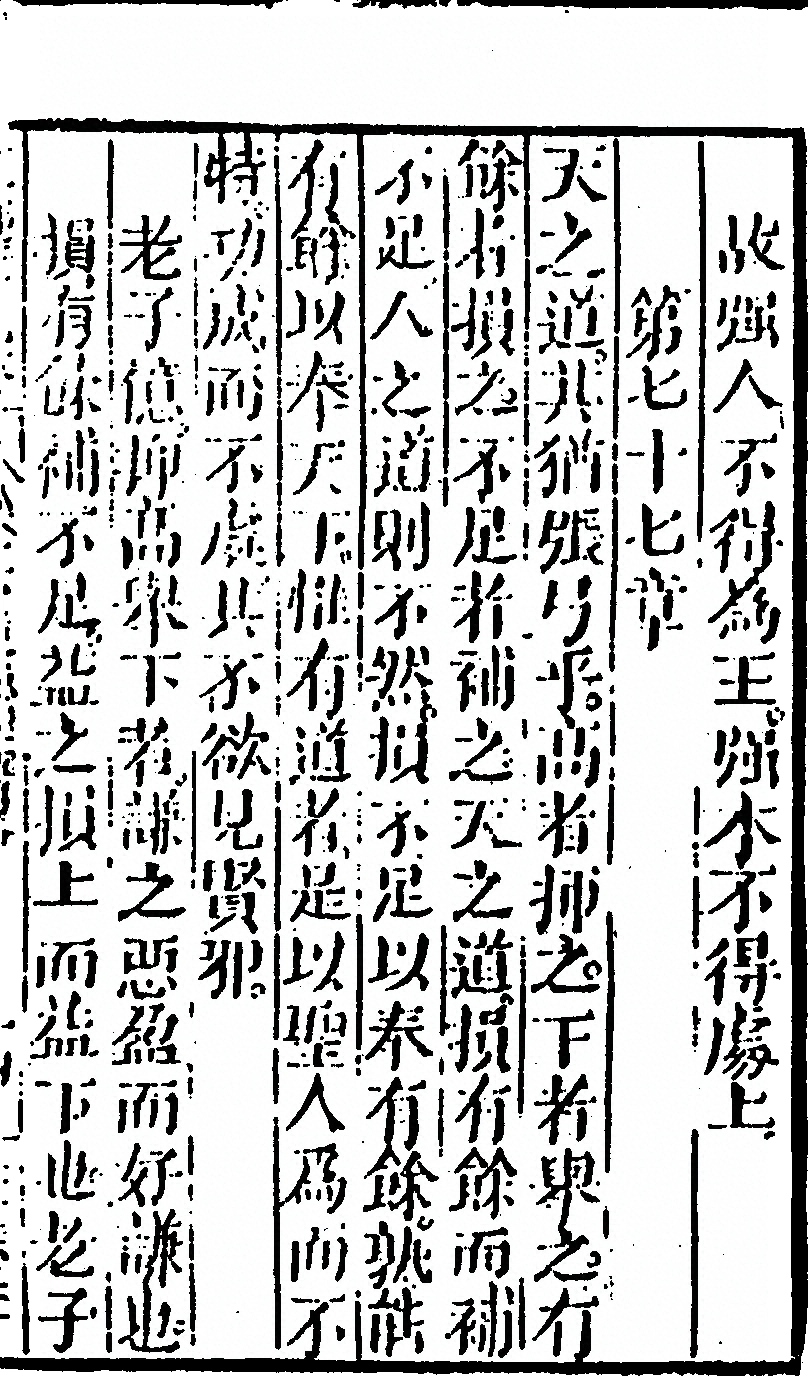 故强人不得為王强木不得處上
第七十七章
天之道其猶張弓乎高者抑之下者舉之有
餘者損之不足者補之天之道損有餘而補
不足人之道則不然損不足以奉有餘孰能
有餘以奉天下惟有道者是以聖人爲而不
恃功成而不處其不欲見賢邪
老子億抑高舉下者謙之惡盈而好謙也
損有餘補不足益之損上而益下也老子